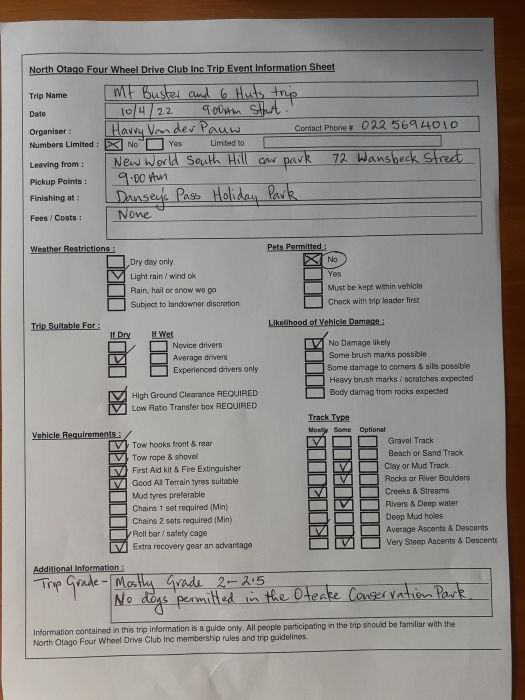 North Otago Four Wheel Drive Club Inc Trip Event Information Sheet
Trip Name Mt Buster and 6 Huts trip
Date 10/4/22 9:00am Start.
Organiser : Harry Van der Pauw Contact Phone # 022 5694010
Numbers Limited : No Yes Limited to
Leaving from : New World South Hill car park 72 Wansbeck Street
Pickup Points : 9.00 Am
Finishing at : Danseys Pass Holiday Park
Fees / Costs : None
Weather Restrictions :
Dry day only
Light rain / wind ok
Rain, hail or snow we go
Subject to landowner discretion
Pets Permitted :
No
Yes
Must be kept within vehicle
Check with trip leader first
Trip Suitable For :
If Dry If Wet
Novice drivers
Average drivers
Experienced drivers only
High Ground Clearance REQUIRED
Low Ratio Transfer box REQUIRED
Likelihood of Vehicle Damage :
No Damage likely
Some brush marks possible
Some damage to corners & sills possible
Heavy brush marks / scratches expected
Body damag from rocks expected
Vehicle Requirements :
Tow hooks front & rear
Tow rope & shovel
First Aid kit & Fire Extinguisher
Good All Terrain tyres suitable
Mud tyres preferable
Chains 1 set required (Min)
Chains 2 sets required (Min)
Roll bar / safety cage
Extra recovery gear an advantage
Track Type
Mostly Some Optional
Gravel Track
Beach or Sand Track
Clay or Mud Track
Rocks or River Boulders
Creeks & Streams
Rivers & Deep water
Deep Mud holes
Average Ascents & Descents
Very Steep Ascents & Descents
Additional Information :
Trip Grade - Mostly Grade 2 - 2.5
No dogs permitted in the Oteake Conservation Park
Information contained in this trip information is a guide only. All people participating in the trip should be familiar with the
North Otago Four Wheel Drive Club Inc membership rules and trip guidelines.